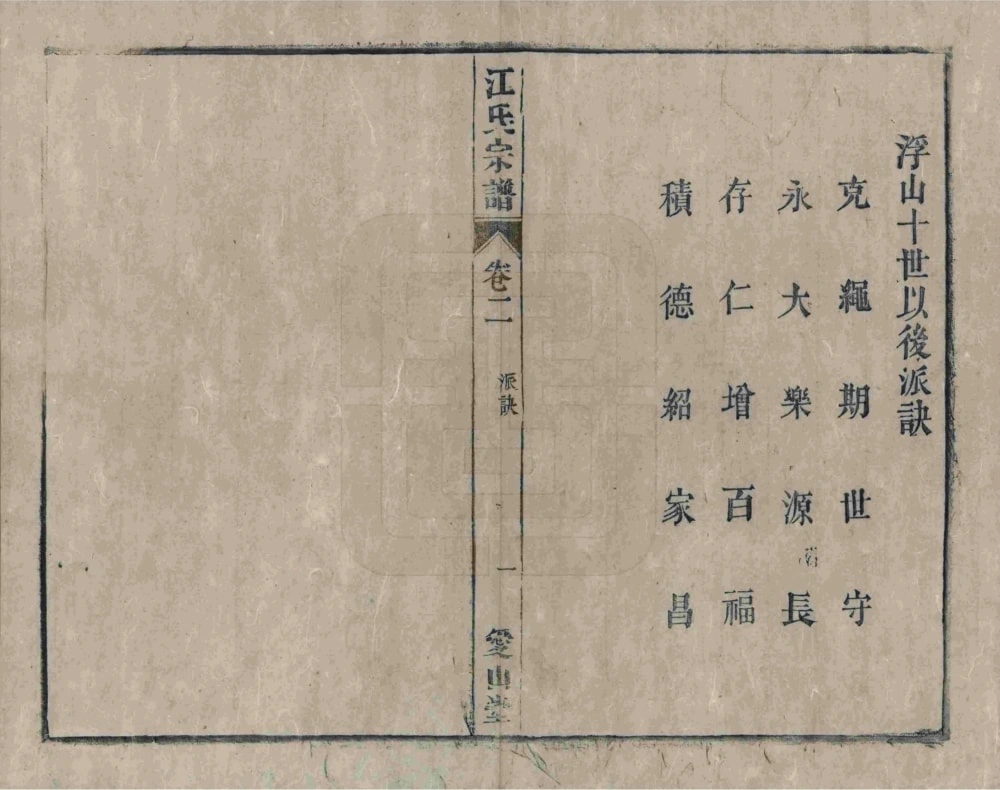 浮山十世以後派訣
克繩期世守
永大樂源長
存仁增百福
積德紹家昌
江氏宗譜
卷二
派訣
一
愛山堂